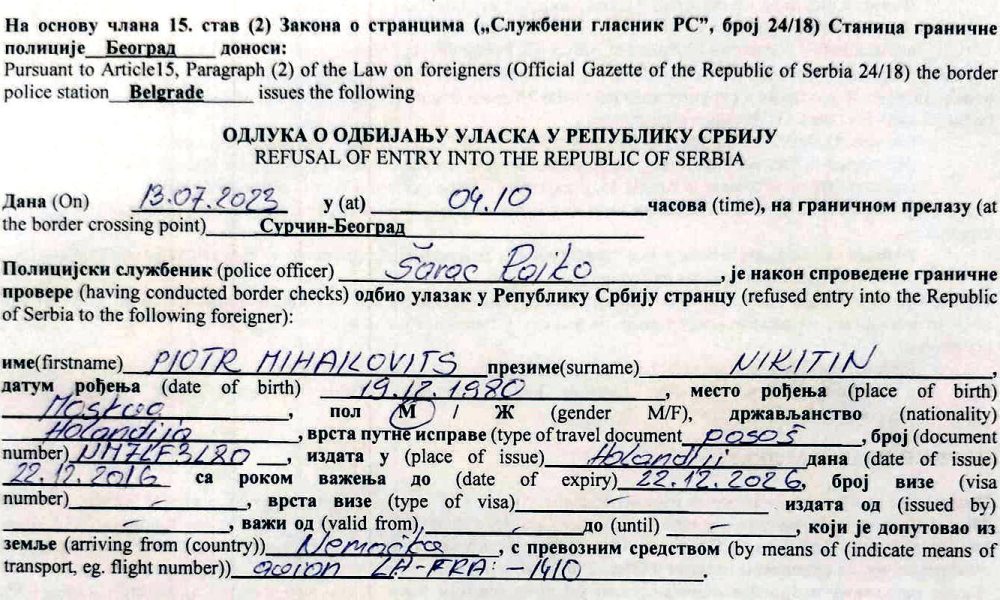 На основу члана 15. став (2) Закона о странцима („Службени гласник РС”, број 24/18) Станица граничне
полиције Београд доноси:
Pursuant to Article15, Paragraph (2) of the Law on foreigners (Official Gazette of the Republic of Serbia 24/18) the border
police station Belgrade issues the following
ОДЛУКА О ОДБИЈАЊУ УЛАСКА У РЕПУБЛИКУ СРБИЈУ
REFUSAL OF ENTRY INTO THE REPUBLIC OF SERBIA
Дана (On) 13.07.2023 у (at) 04.10 часова (time), на граничном прелазу (at
the border crossing point) Сурчин-Београд
Полицијски службеник (police officer) Šarac Rajko, је након спроведене граничне
провере (having conducted border checks) одбио улазак у Републику Србију странцу (refused entry into the Republic
of Serbia to the following foreigner):
име(firstname) PJOTR MIHAILOVITS презиме(surname) NIKITIN,
датум рођења (date of birth) 19.12.1980, место рођења (place of birth)
Moskva, пол М / Ж (gender M/F), држављанство (nationality)
Holandija, врста путне исправе (type of travel document pasoš, број (document
number) NM7LF3L80, издата у (place of issue) Holandiji дана (date of issue)
22.12.2016 са роком важења до (date of expiry) 22.12.2026, број визе (visa
number) –, врста визе (type of visa) – издата од (issued by)
–, важи од (valid from), – до (until) –, који је допутовао из
земље (arriving from (country)) Nemačka, с превозним средством (by means of (indicate means of
transport, eg. flight number)) avion LH-FRA: -1410.